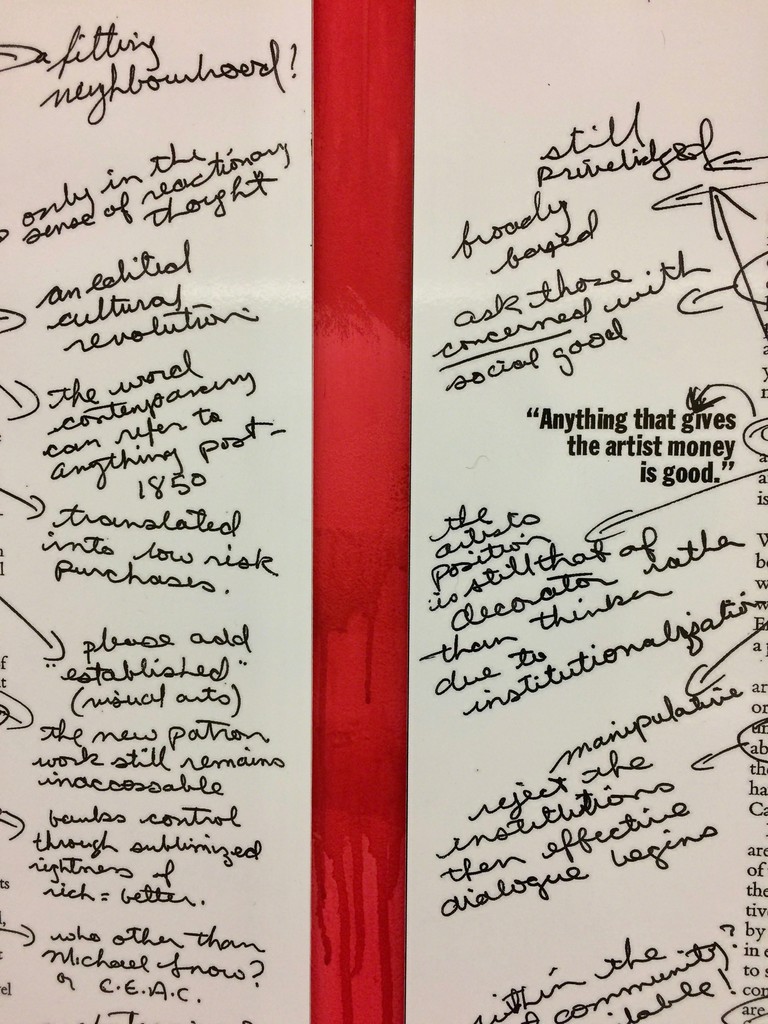 a fitting
neighbourhood?
only in the
sense of reactionary
thought
an edited
cultural
revolution
the word
contemporary
can refer to
anything post-
1850
translated
into low risk
purchases.
please add
"established"
(visual arts)
the new patron
work still remains
inaccossable
banks control
through sublimized
rightness of
rich = better.
who other than
Michael Snow?
or C.E.A.C.
still
privelidged
broadly
based
ask those
concerned with
social good
“Anything that gives
the artist money
is good.”
the
artists
position
is still that of
decorator rather
than thinker
due to
institutionalization
manipulative
reject the
institutions
then effective
dialogue begins
within the
community?